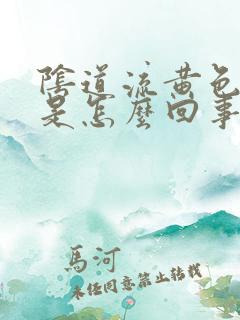 陰道流黄色
是怎麼回事
馬河
未经同意禁止转载